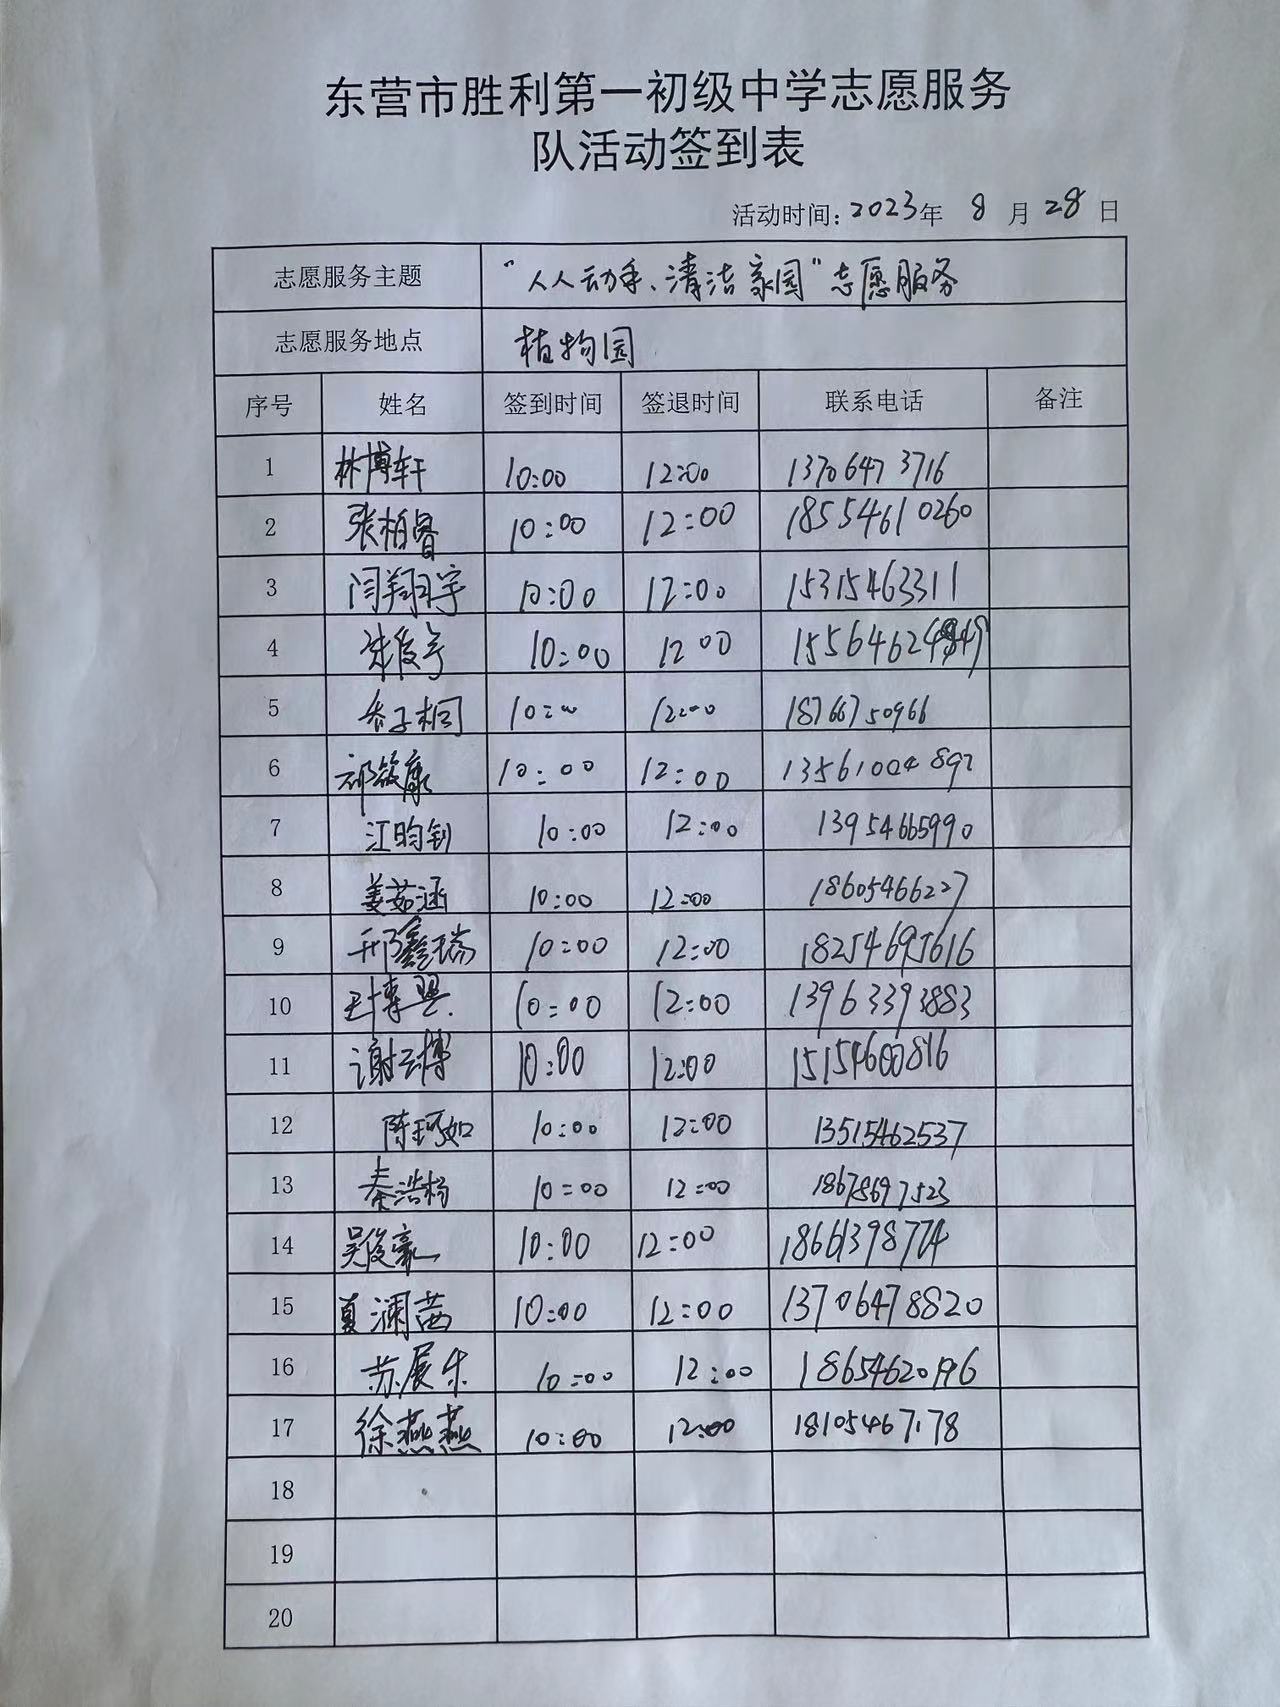 东营市胜利第一初级中学志愿服务
队活动签到表
活动时间: 2023年 8 月 28 日
志愿服务主题 "人人动手、清洁家园"志愿服务
志愿服务地点 植物园
序号 姓名 签到时间 签退时间 联系电话 备注
1 林博轩 10:00 12:00 13706473716
2 张柏睿 10:00 12:00 18554610260
3 闫翔宇 10:00 12:00 15315463311
4 10:00 12:00
5 10:00 12:00 18766750966
6 祁筱康 10:00 12:00 13561004892
7 江昀钊 10:00 12:00 13954665990
8 姜茹涵 10:00 12:00 18605466227
9 邢鑫瑞 10:00 12:00 18254695616
10 10:00 12:00 13963393883
11 谢云博 10:00 12:00 15154600816
12 陈珂如 10:00 12:00 13515462537
13 秦浩杨 10:00 12:00 18678697523
14 吴俊豪 10:00 12:00 18661398774
15 夏澜茜 10:00 12:00 13706478820
16 苏展乐 10:00 12:00
17 徐燕燕 10:00 12:00 18105467178
18
19
20